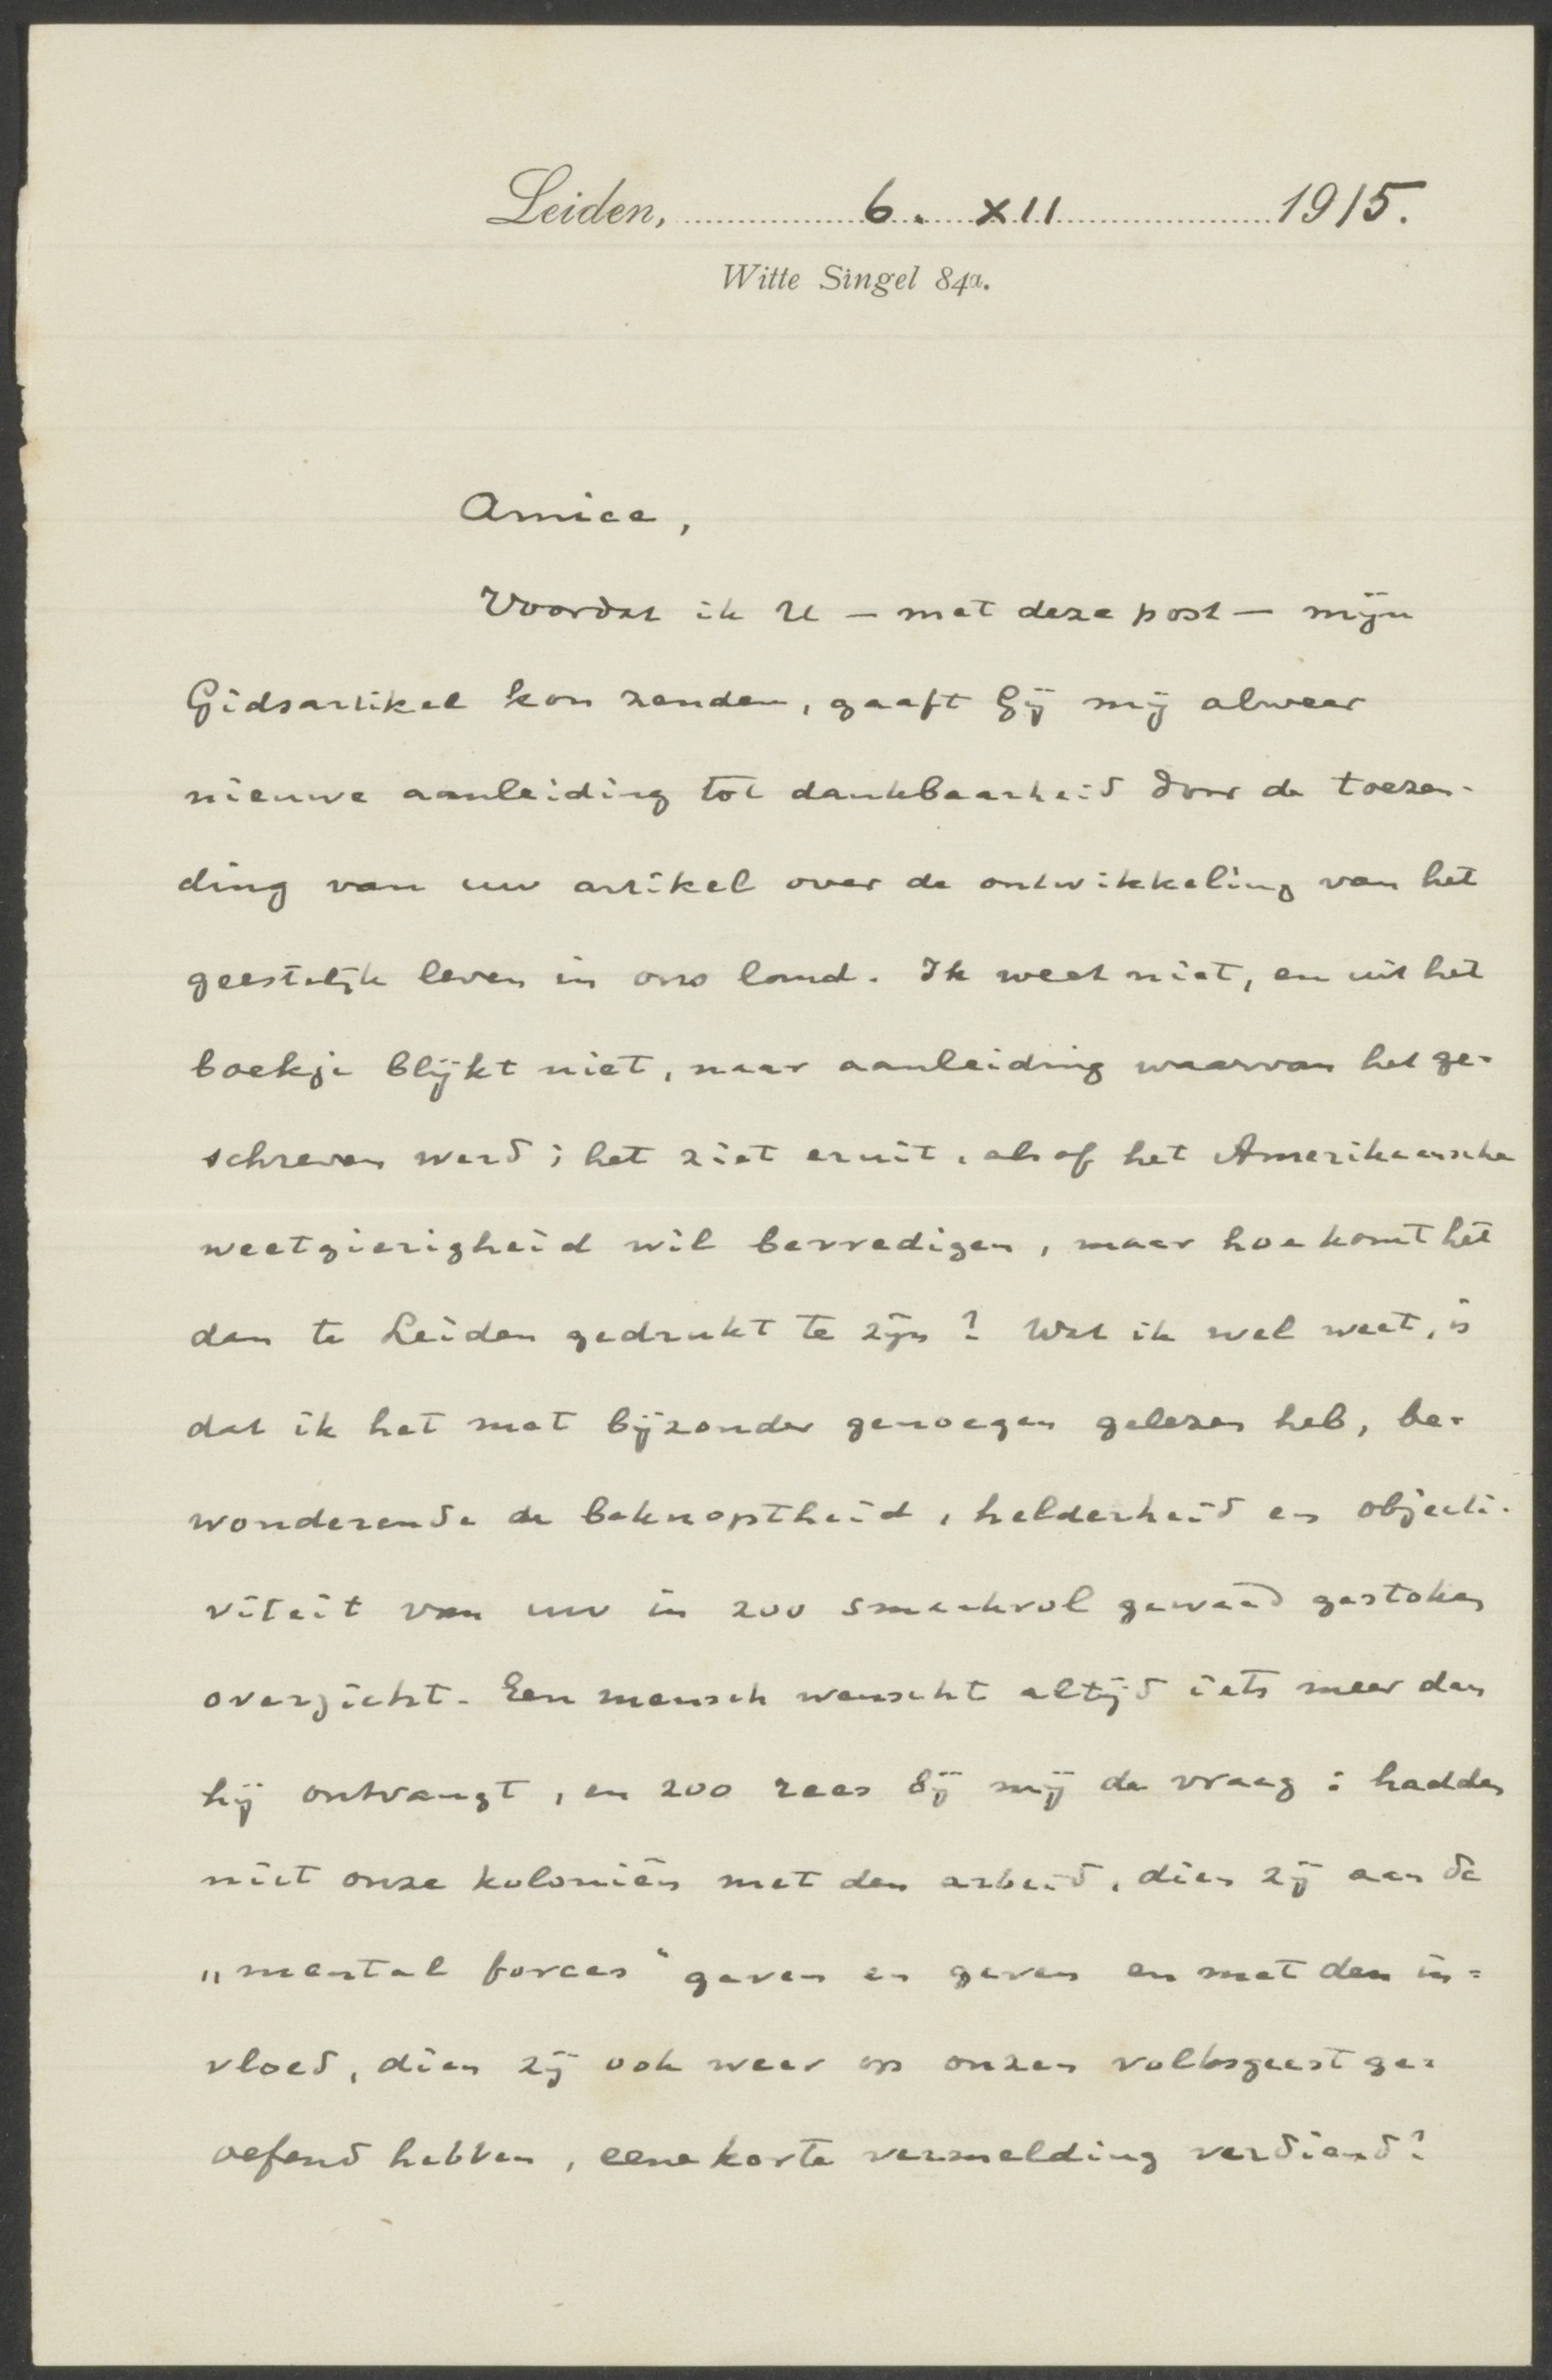 Leiden, 6. XII 1915.
Witte Singel 84a.
Amice,
Voordat ik U – met deze post – mijn
Gidsartikel kon zenden, gaaft Gij mij alweer
nieuwe aanleiding tot dankbaarheid door de toezen-
ding van uw artikel over de ontwikkeling van het
geestelijk leven in ons land. Ik weet niet, en uit het
boekje blijkt niet, naar aanleiding waarvan het ge-
schreven werd; het ziet eruit, alsof het Amerikaansche
weetgierigheid wil bevredigen, maar hoe komt het
dan te Leiden gedrukt te zijn? Wat ik wel weet, is
dat ik het met bijzonder genoegen gelezen heb, be-
wonderende de beknoptheid, helderheid en objecti-
viteit van uw in zoo smaakvol gewaad gestoken
overzicht. Een mensch wenscht altijd iets meer dan
hij ontvangt, en zoo rees bij mij de vraag: hadden
niet onze koloniën met den arbeid, dien zij aan de
„mental forces“ gaven en geven en met den in=
vloed, dien zij ook weer op onzen volksgeest ge=
oefend hebben, eene korte vermelding verdiend?